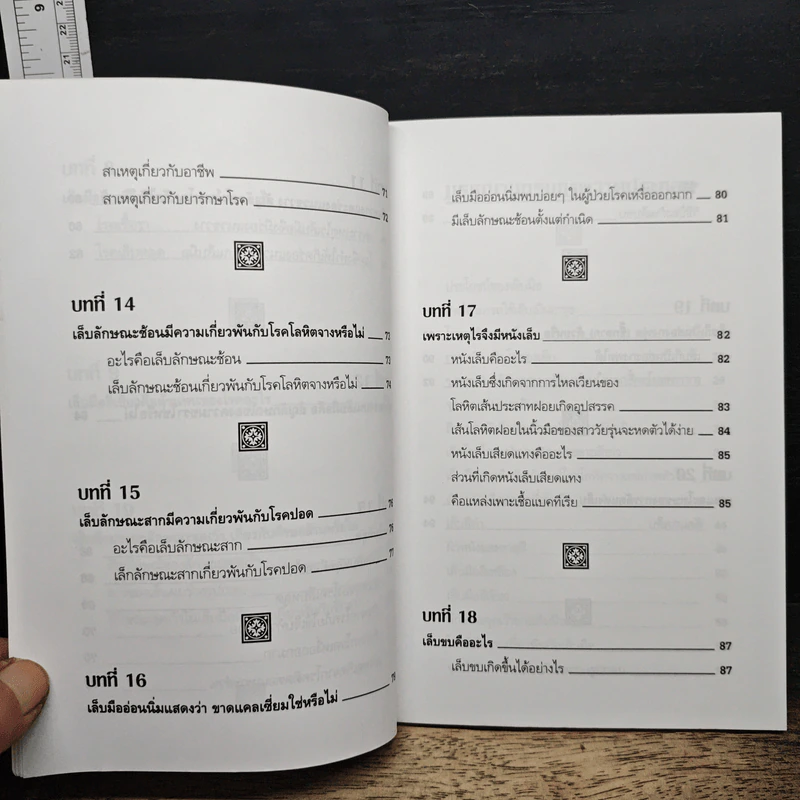 9
22
21
สาเหตุเกี่ยวกับอาชีพ 71
สาเหตุเกี่ยวกับยารักษาโรค 72
บทที่ 14
เล็บลักษณะช้อนมีความเกี่ยวพันกับโรคโลหิตจางหรือไม่ 73
อะไรคือเล็บลักษณะช้อน 73
เล็บลักษณะช้อนเกี่ยวพันกับโรคโลหิตจางหรือไม่ 74
บทที่ 15
เล็บลักษณะสากมีความเกี่ยวพันกับโรคปอด 76
อะไรคือเล็บลักษณะสาก 76
เล็กลักษณะสากเกี่ยวพันกับโรคปอด 77
บทที่ 16
เล็บมืออ่อนนิ่มแสดงว่า ขาดแคลเซี่ยมใช่หรือไม่ 79
เล็บมืออ่อนนิ่มพบบ่อยๆ ในผู้ป่วยโรคเหงื่อออกมาก 80
มีเล็บลักษณะช้อนตั้งแต่กำเนิด 81
บทที่ 17
เพราะเหตุไรจึงมีหนังเล็บ 82
หนังเล็บคืออะไร 82
หนังเล็บซึ่งเกิดจากการไหลเวียนของ
โลหิตเส้นประสาทฝอยเกิดอุปสรรค 83
เส้นโลหิตฝอยในนิ้วมือของสาววัยรุ่นจะหดตัวได้ง่าย 84
หนังเล็บเสียดแทงคืออะไร 85
ส่วนที่เกิดหนังเล็บเสียดแทง
คือแหล่งเพาะเชื้อแบคทีเรีย 85
บทที่ 18
เล็บขบคืออะไร 87
เล็บขบเกิดขึ้นได้อย่างไร 87